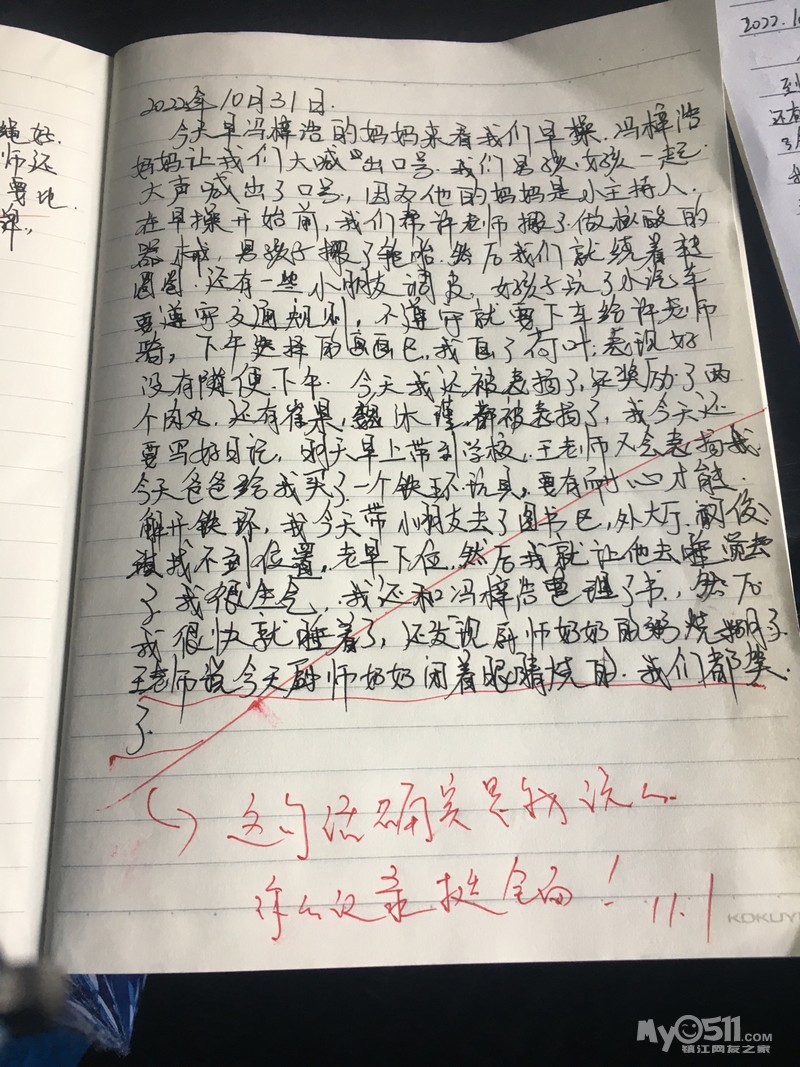 绳好.
师还
要比
2022.10
到
还有
3月
2022年10月31日.
今天早冯梓浩的妈妈来看我们早操.冯梓浩
妈妈让我们大喊出口号.我们男孩、女孩一起
大声喊出了口号,因为他的妈妈是小主持人.
在早操开始前,我们帮许老师搬了做核酸的
器械,男孩子搬了 然后我们就绕着
圈圈.还有一些小朋友调皮.女孩子玩了小汽车
要遵守交通规则,不遵守就要下车给许老师
骑,下午选择的画画区,我画了荷叶,表现好
没有随便下午.今天我还被表扬了,还奖励了两
个肉丸,还有崔果,魏沐瑾,都被表扬了,我今天还
要写好日记,明天早上带到学校,王老师又会表扬我
今天爸爸给我买了一个铁环玩具,要有耐心才能.
解开铁环,我今天带小朋友去了图书区,外大厅
找不到位置,老早下位,然后我就让他去睡
了,我很生气,我还和冯梓浩整理了书,然后
我很快就睡着了,还发现厨师奶奶的粥烧糊了.
王老师说今天厨师奶奶闭着眼睛烧的.我们都笑.
了.
这句话确实是我说的
你的记录挺全面! 11.1
KOKUYO
MyO511.COM
镇江网友之家